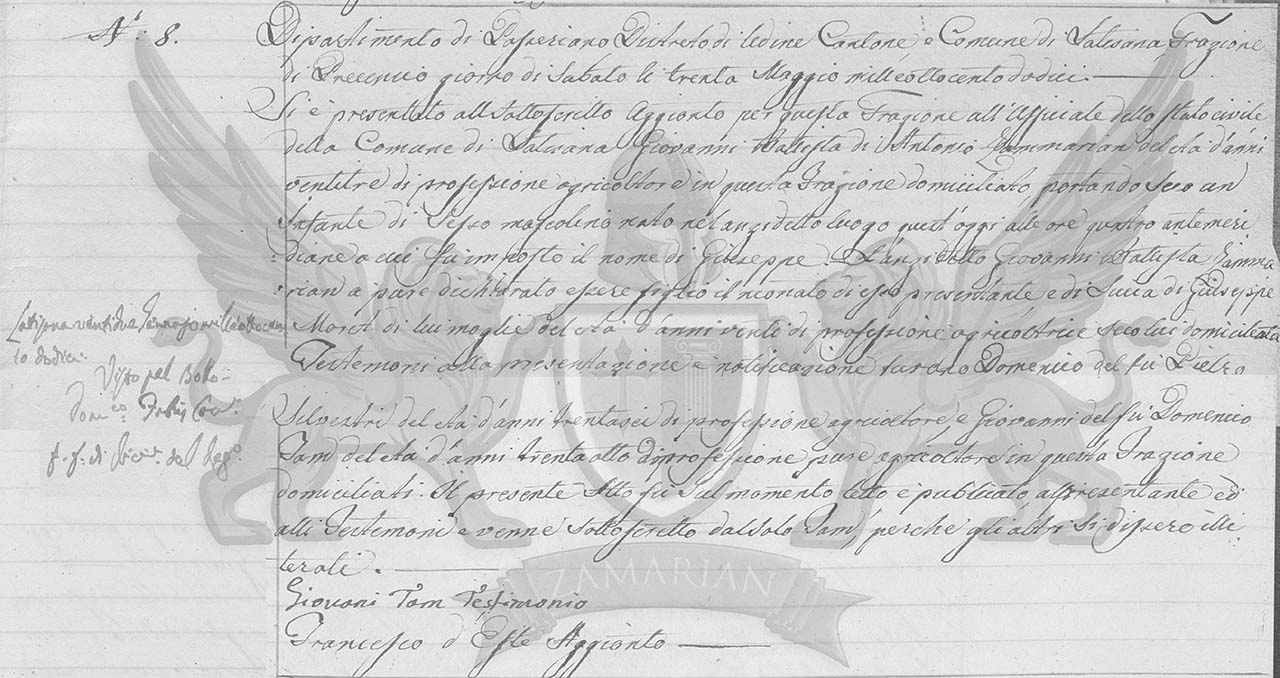 N.º 8.
Dipartimento di Passeriano Distreto di Udine Cantone e Comune di Latisana Frazione
di Precenico giorno di Sabato li trenta Maggio milleottocentododici.
Si è presentato all Sottoscritto Aggionto per questa Fragione all'Afficiale dello stato civile
della Comune di Latisana Giovanni Batista di Antonio Zammarian del età d'anni
ventitre di professione agricoltore in questa Fragione domiciliato portando seco un
Infante di Sesso mascolino nato nel anzidetto luogo quest'oggi alle ore quattro antemeri
:diane a cui fu imposto il nome di Giuseppe. L'anzidetto Giovanni Batista Zamma
:rian a pure dichiarato essere figlio il neonato di esso presentante e di Lucia di Giuseppe
Moret di lui moglie del età d'anni venti di professione agricoltrice seco lui domiciliata
Testemoni alla presentazione e notificazione furono Domenico del fu Pietro
Silvestri del età d'anni trentasei di professione agricoltore, e Giovanni del fu Domenico
Tam del età d'anni trentaotto di professione pure agricoltore in questa Fragione
domiciliati. Il presente Atto fu sul momento letto e publicato all presentante ed
alli Testemoni e venne sottoscritto dal solo Tam, perche gli altri si dissero illi
terati.
Giovani Tam Testimonio
Francesco d'Este Aggionto
Latisana ventidue
to dodici.
Visto pel Bolo
Dom.co
f. f. di del Reg.o
ZAMARIAN